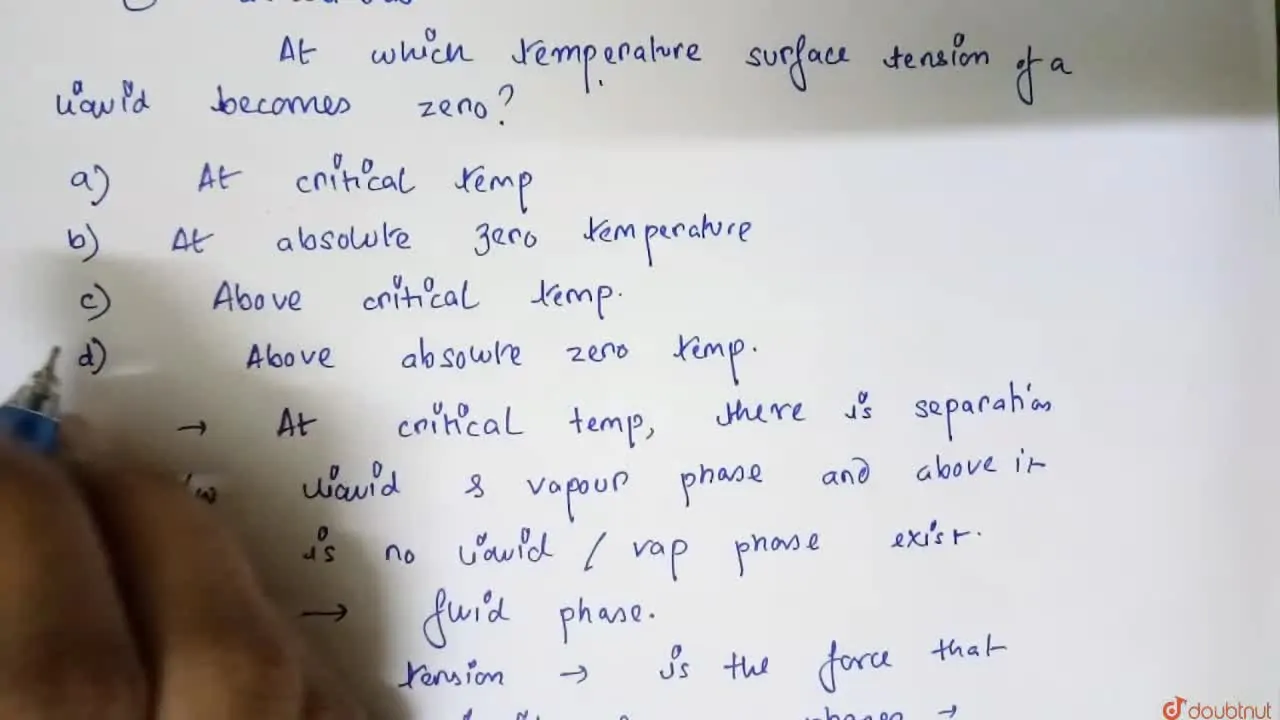 At which temperature surface tension of a
liquid becomes zero?
a) At critical temp
b) At absolute zero temperature
c) Above critical temp.
d) Above absolute zero temp.
→ At critical temp, there is separation
liquid & vapour phase and above it
is no liquid / vap phase exist.
→ fluid phase.
tension → is the force that
doubtnut